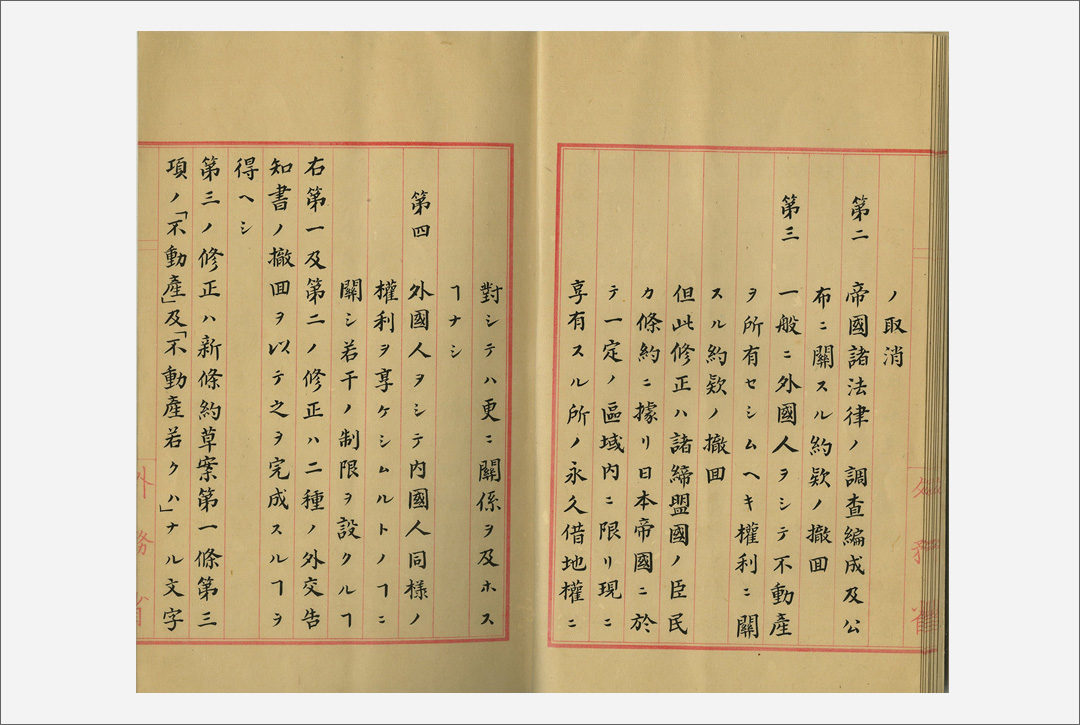 ノ取消
第二 帝國諸法律ノ調査編成及公
布ニ關スル約欵ノ撤回
第三 一般ニ外國人ヲシテ不動產
ヲ所有セシムヘキ權利ニ關
スル約欵ノ撤回
但此修正ハ諸締盟國ノ臣民
カ條約ニ據リ日本帝國ニ於
テ一定ノ區域内ニ限リ現ニ
享有スル所ノ永久借地權ニ
對シテハ更ニ關係ヲ及ホス
ヿナシ
第四 外國人ヲシテ内國人同樣ノ
權利ヲ享ケシムルトノヿニ
關シ若干ノ制限ヲ設クルヿ
右第一及第二ノ修正ハ二種ノ外交告
知書ノ撤回ヲ以テ之ヲ完成スルヿヲ
得ヘシ
第三ノ修正ハ新條約草案第一條第三
項ノ「不動產」及「不動產若クハ」ナル文字
外務省